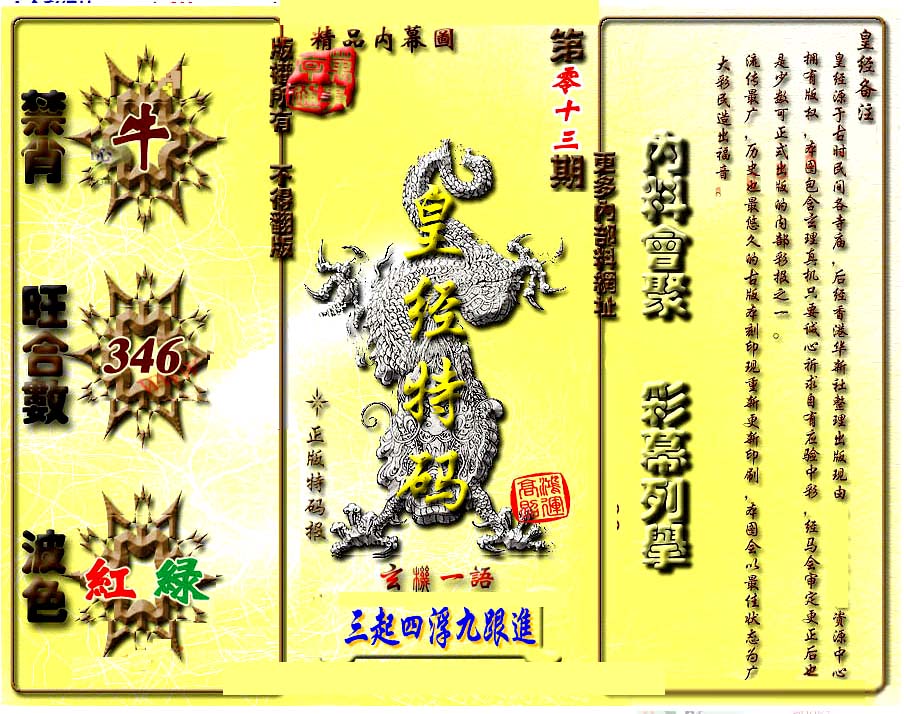 禁肖
牛
旺合數
346
波色
紅 綠
版權所有 不得翻版
精品內幕圖
第零十三期
更多內部料網址
皇经特码
正版特码报
鴻運高照
玄機一語
三起四浮九跟進
內料會聚
彩幕列舉
皇经备注
皇经源于古时民间各寺庙，后经香港华新社整理出版现由 资源中心
拥有版权，本图包含玄理真机只要诚心祈求自有应验中彩，经马会审定更正后也
是少数可正式出版的内部彩报之一。
流传最广，历史也最悠久的古版本刻印现重新更新印刷，本图会以最佳状态为广
大彩民造出福音